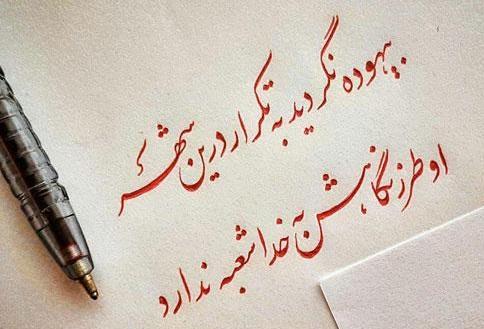 بیهوده نگردید به تکرار درین شهر
او طرز نگاهش به خدا شعبه ندارد